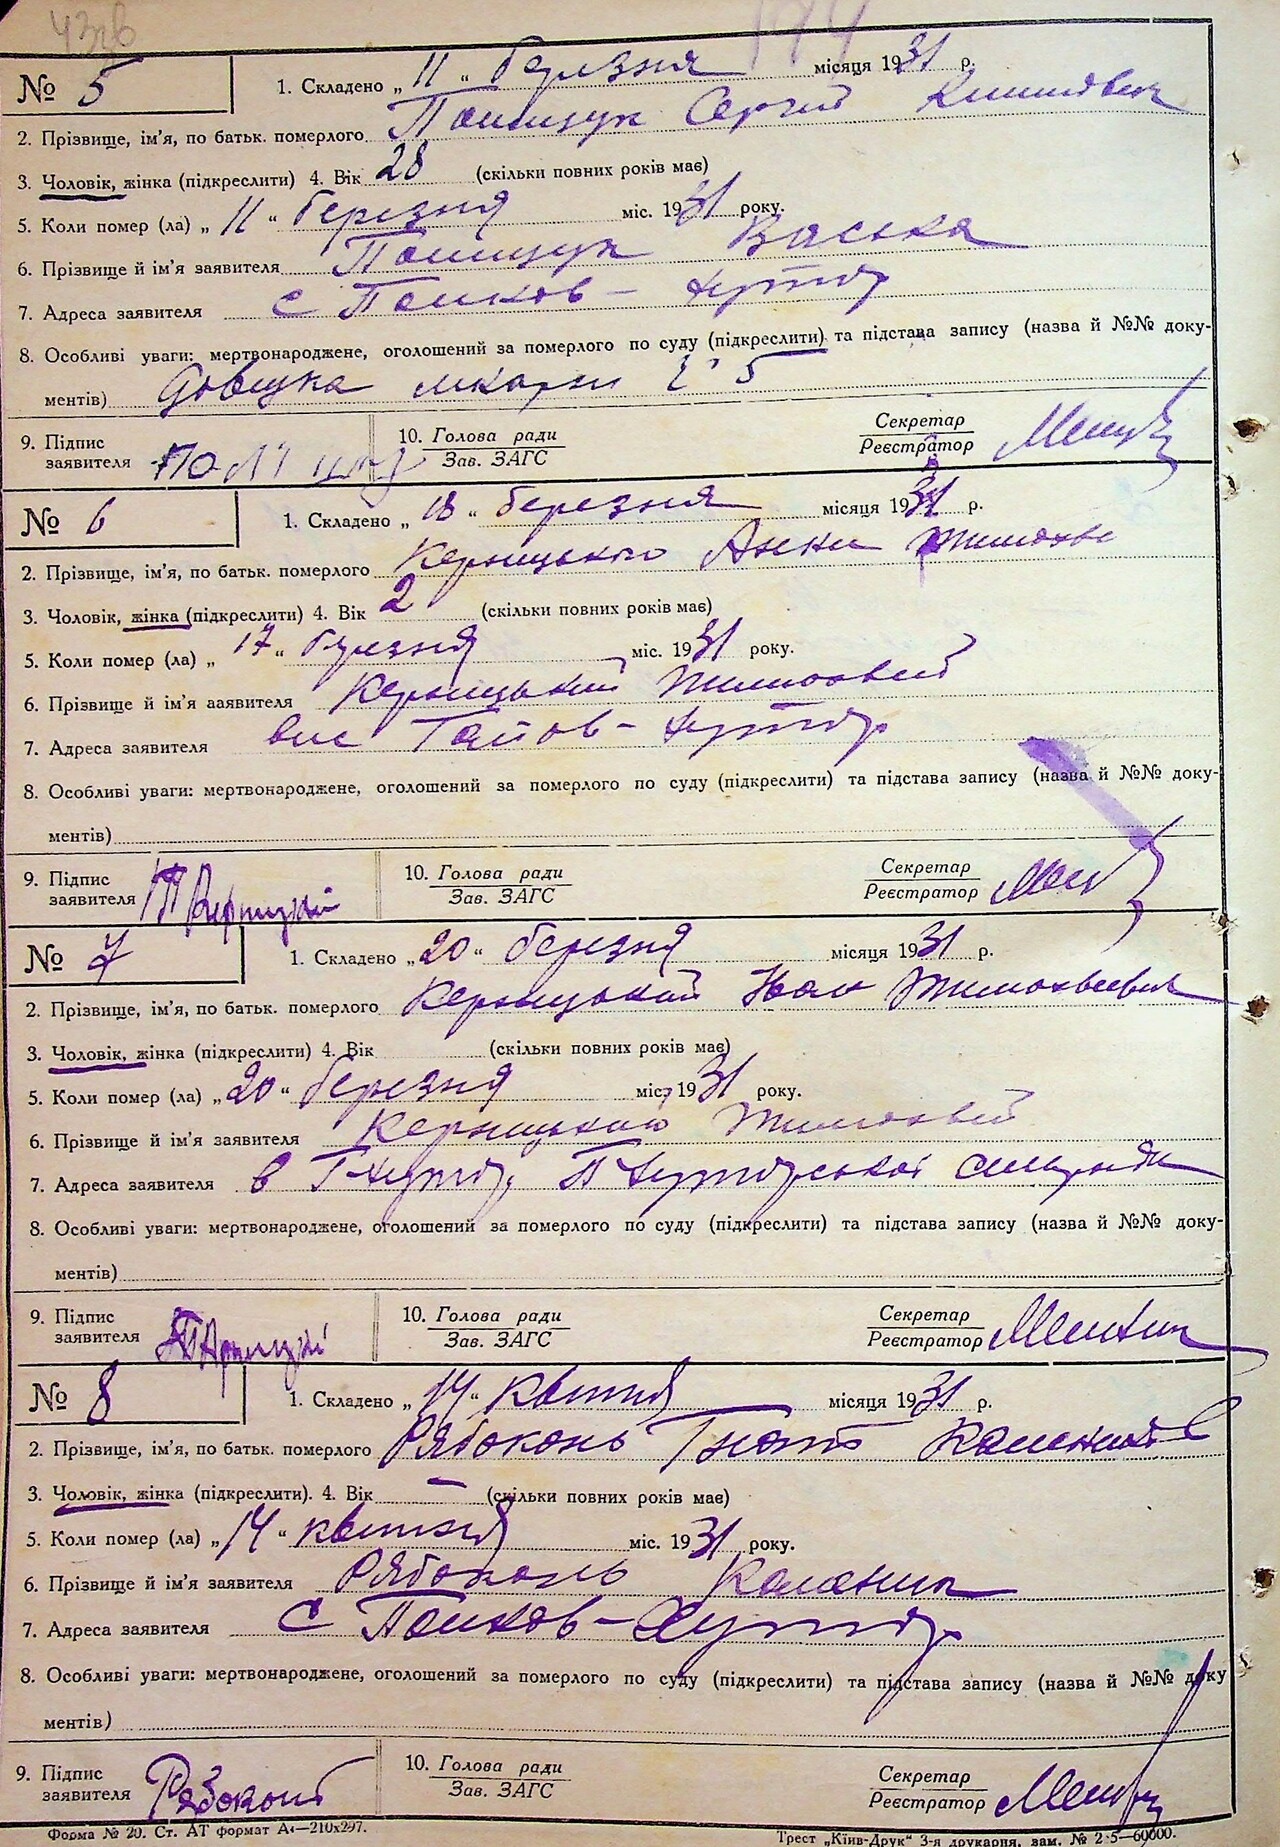 № 5
1. Складено „ 11 “ березня місяця 1931 р.
2. Прізвище, ім'я, по батьк. померлого Поліщук Сергій
3. Чоловік, жінка (підкреслити) 4. Вік 28 (скільки повних років має)
5. Коли помер (ла) „ 11 “ березня міс. 1931 року.
6. Прізвище й ім'я заявителя Поліщук Васька
7. Адреса заявителя с Попков-Хутор
8. Особливі уваги: мертвонароджене, оголошений за померлого по суду (підкреслити) та підстава запису (назва й №№ доку-
ментів) Довідка лікарні № 5
9. Підпис заявителя
10. Голова ради
Зав. ЗАГС
Секретар
Реєстратор
№ 6
1. Складено „ 18 “ березня місяця 1931 р.
2. Прізвище, ім'я, по батьк. померлого Керницького Анни
3. Чоловік, жінка (підкреслити) 4. Вік 2 (скільки повних років має)
5. Коли помер (ла) „ 17 “ березня міс. 1931 року.
6. Прізвище й ім'я ааявителя Керницький Тимохвий
7. Адреса заявителя вис Гайов-Хутор
8. Особливі уваги: мертвонароджене, оголошений за померлого по суду (підкреслити) та підстава запису (назва й №№ доку-
ментів)
9. Підпис заявителя
10. Голова ради
Зав. ЗАГС
Секретар
Реєстратор
№ 7
1. Складено „ 20 “ березня місяця 1931 р.
2. Прізвище, ім'я, по батьк. померлого Керницький Тимохвеевич
3. Чоловік, жінка (підкреслити) 4. Вік (скільки повних років має)
5. Коли помер (ла) „ 20 “ березня міс. 1931 року.
6. Прізвище й ім'я заявителя Керницький Тимохвій
7. Адреса заявителя в Г Хутор, П Хуторської сільради
8. Особливі уваги: мертвонароджене, оголошений за померлого по суду (підкреслити) та підстава запису (назва й №№ доку-
ментів)
9. Підпис заявителя
10. Голова ради
Зав. ЗАГС
Секретар
Реєстратор
№ 8
1. Складено „ 14 “ квітня місяця 1931 р.
2. Прізвище, ім'я, по батьк. померлого Рябоконь Гнат
3. Чоловік, жінка (підкреслити). 4. Вік – (скільки повних років має)
5. Коли помер (ла) „ 14 “ квітня міс. 1931 року.
6. Прізвище й ім'я заявителя Рябоконь Каленик
7. Адреса заявителя с Попков-Хутор
8. Особливі уваги: мертвонароджене, оголошений за померлого по суду (підкреслити) та підстава запису (назва й №№ доку
ментів)
9. Підпис заявителя Рябоконь
10. Голова ради
Зав. ЗАГС
Секретар
Реєстратор
Форма № 20. Ст. АТ формат А4—210х297.
Трест „Київ-Друк“ 3-я друкарня, зам. № 2·5—60000.